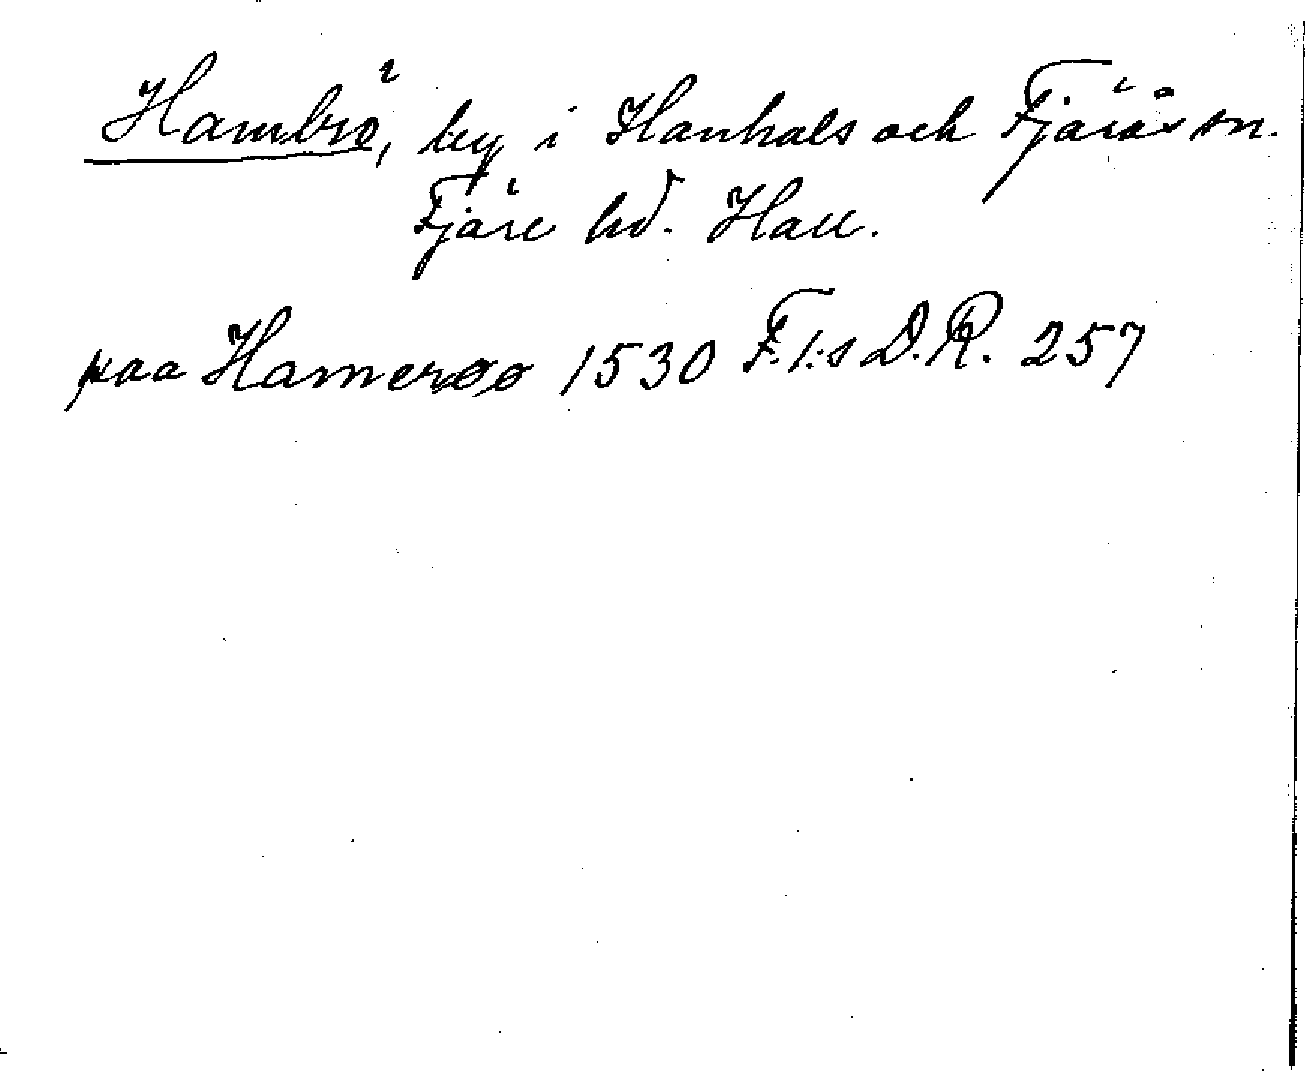 Hambrö, by i Hanhals och Fjärås sn.
Fjäre hd. Hall.
paa Hamerøø 1530 F.I:s D.R. 257